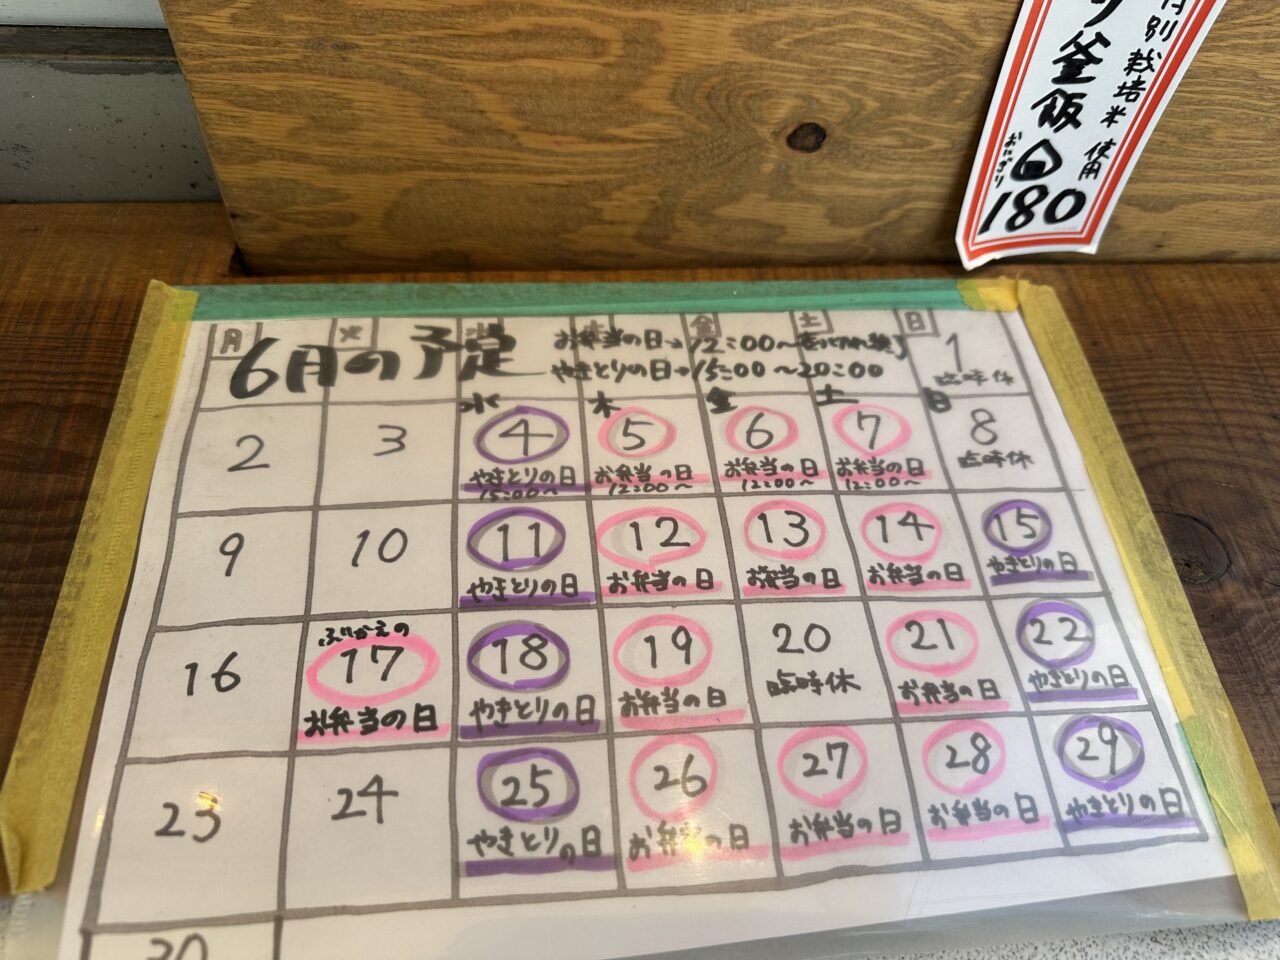 月別栽培米使用
釜飯
おにぎり
180
月 火 木 金 土 日
6月の予定
お弁当の日→12:00～売り切れ終了
やきとりの日→15:00～20:00
水 木 金 土 日
1
臨時休
2 3 4 5 6 7 8
やきとりの日 お弁当の日 お弁当の日 お弁当の日 臨時休
15:00～ 12:00～ 12:00～ 12:00～
9 10 11 12 13 14 15
やきとりの日 お弁当の日 お弁当の日 お弁当の日 やきとりの日
ふりかえの
16 17 18 19 20 21 22
お弁当の日 やきとりの日 お弁当の日 臨時休 お弁当の日 やきとりの日
23 24 25 26 27 28 29
やきとりの日 お弁当の日 お弁当の日 お弁当の日 やきとりの日
30